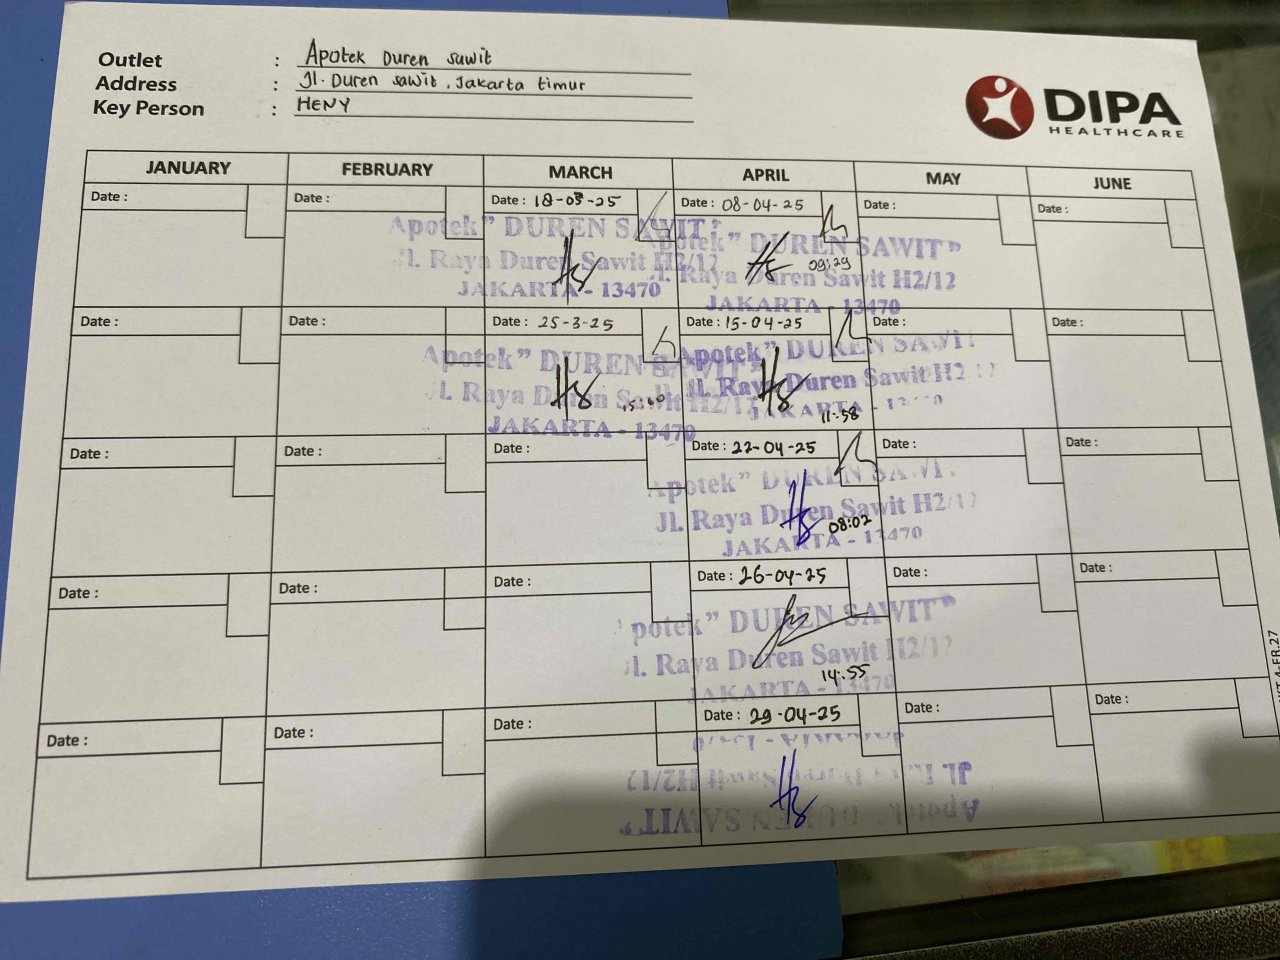 Outlet : Apotek Duren sawit
Address : Jl. Duren sawit, Jakarta timur
Key Person : HENY
DIPA
HEALTHCARE
JANUARY FEBRUARY MARCH APRIL MAY JUNE
Date : Date : Date : 18-03-25 Date : 08-04-25 Date : Date :
Apotek" DUREN SAWIT" Apotek" DUREN SAWIT"
Jl. Raya Duren Sawit H2/12 Jl. Raya Duren Sawit H2/12
09:29
JAKARTA - 13470 JAKARTA - 13470
Date : Date : Date : 25-3-25 Date : 15-04-25 Date : Date :
Apotek" DUREN SAWIT" Apotek" DUREN SAWIT
Jl. Raya Duren Sawit H2/12 Jl. Raya Duren Sawit H2
JAKARTA - 13470 JAKARTA - 1
11:58
Date : Date : Date : Date : 22-04-25 Date : Date :
Apotek" DUREN SAWIT
Jl. Raya Duren Sawit H2/12
08:02
JAKARTA - 13470
Date : Date : Date : Date : 26-04-25 Date : Date :
potek" DUREN SAWIT"
Jl. Raya Duren Sawit H2/12
14:55
JAKARTA - 13470
Date : Date : Date : Date : 29-04-25 Date : Date :
Apotek" DUREN SAWIT"